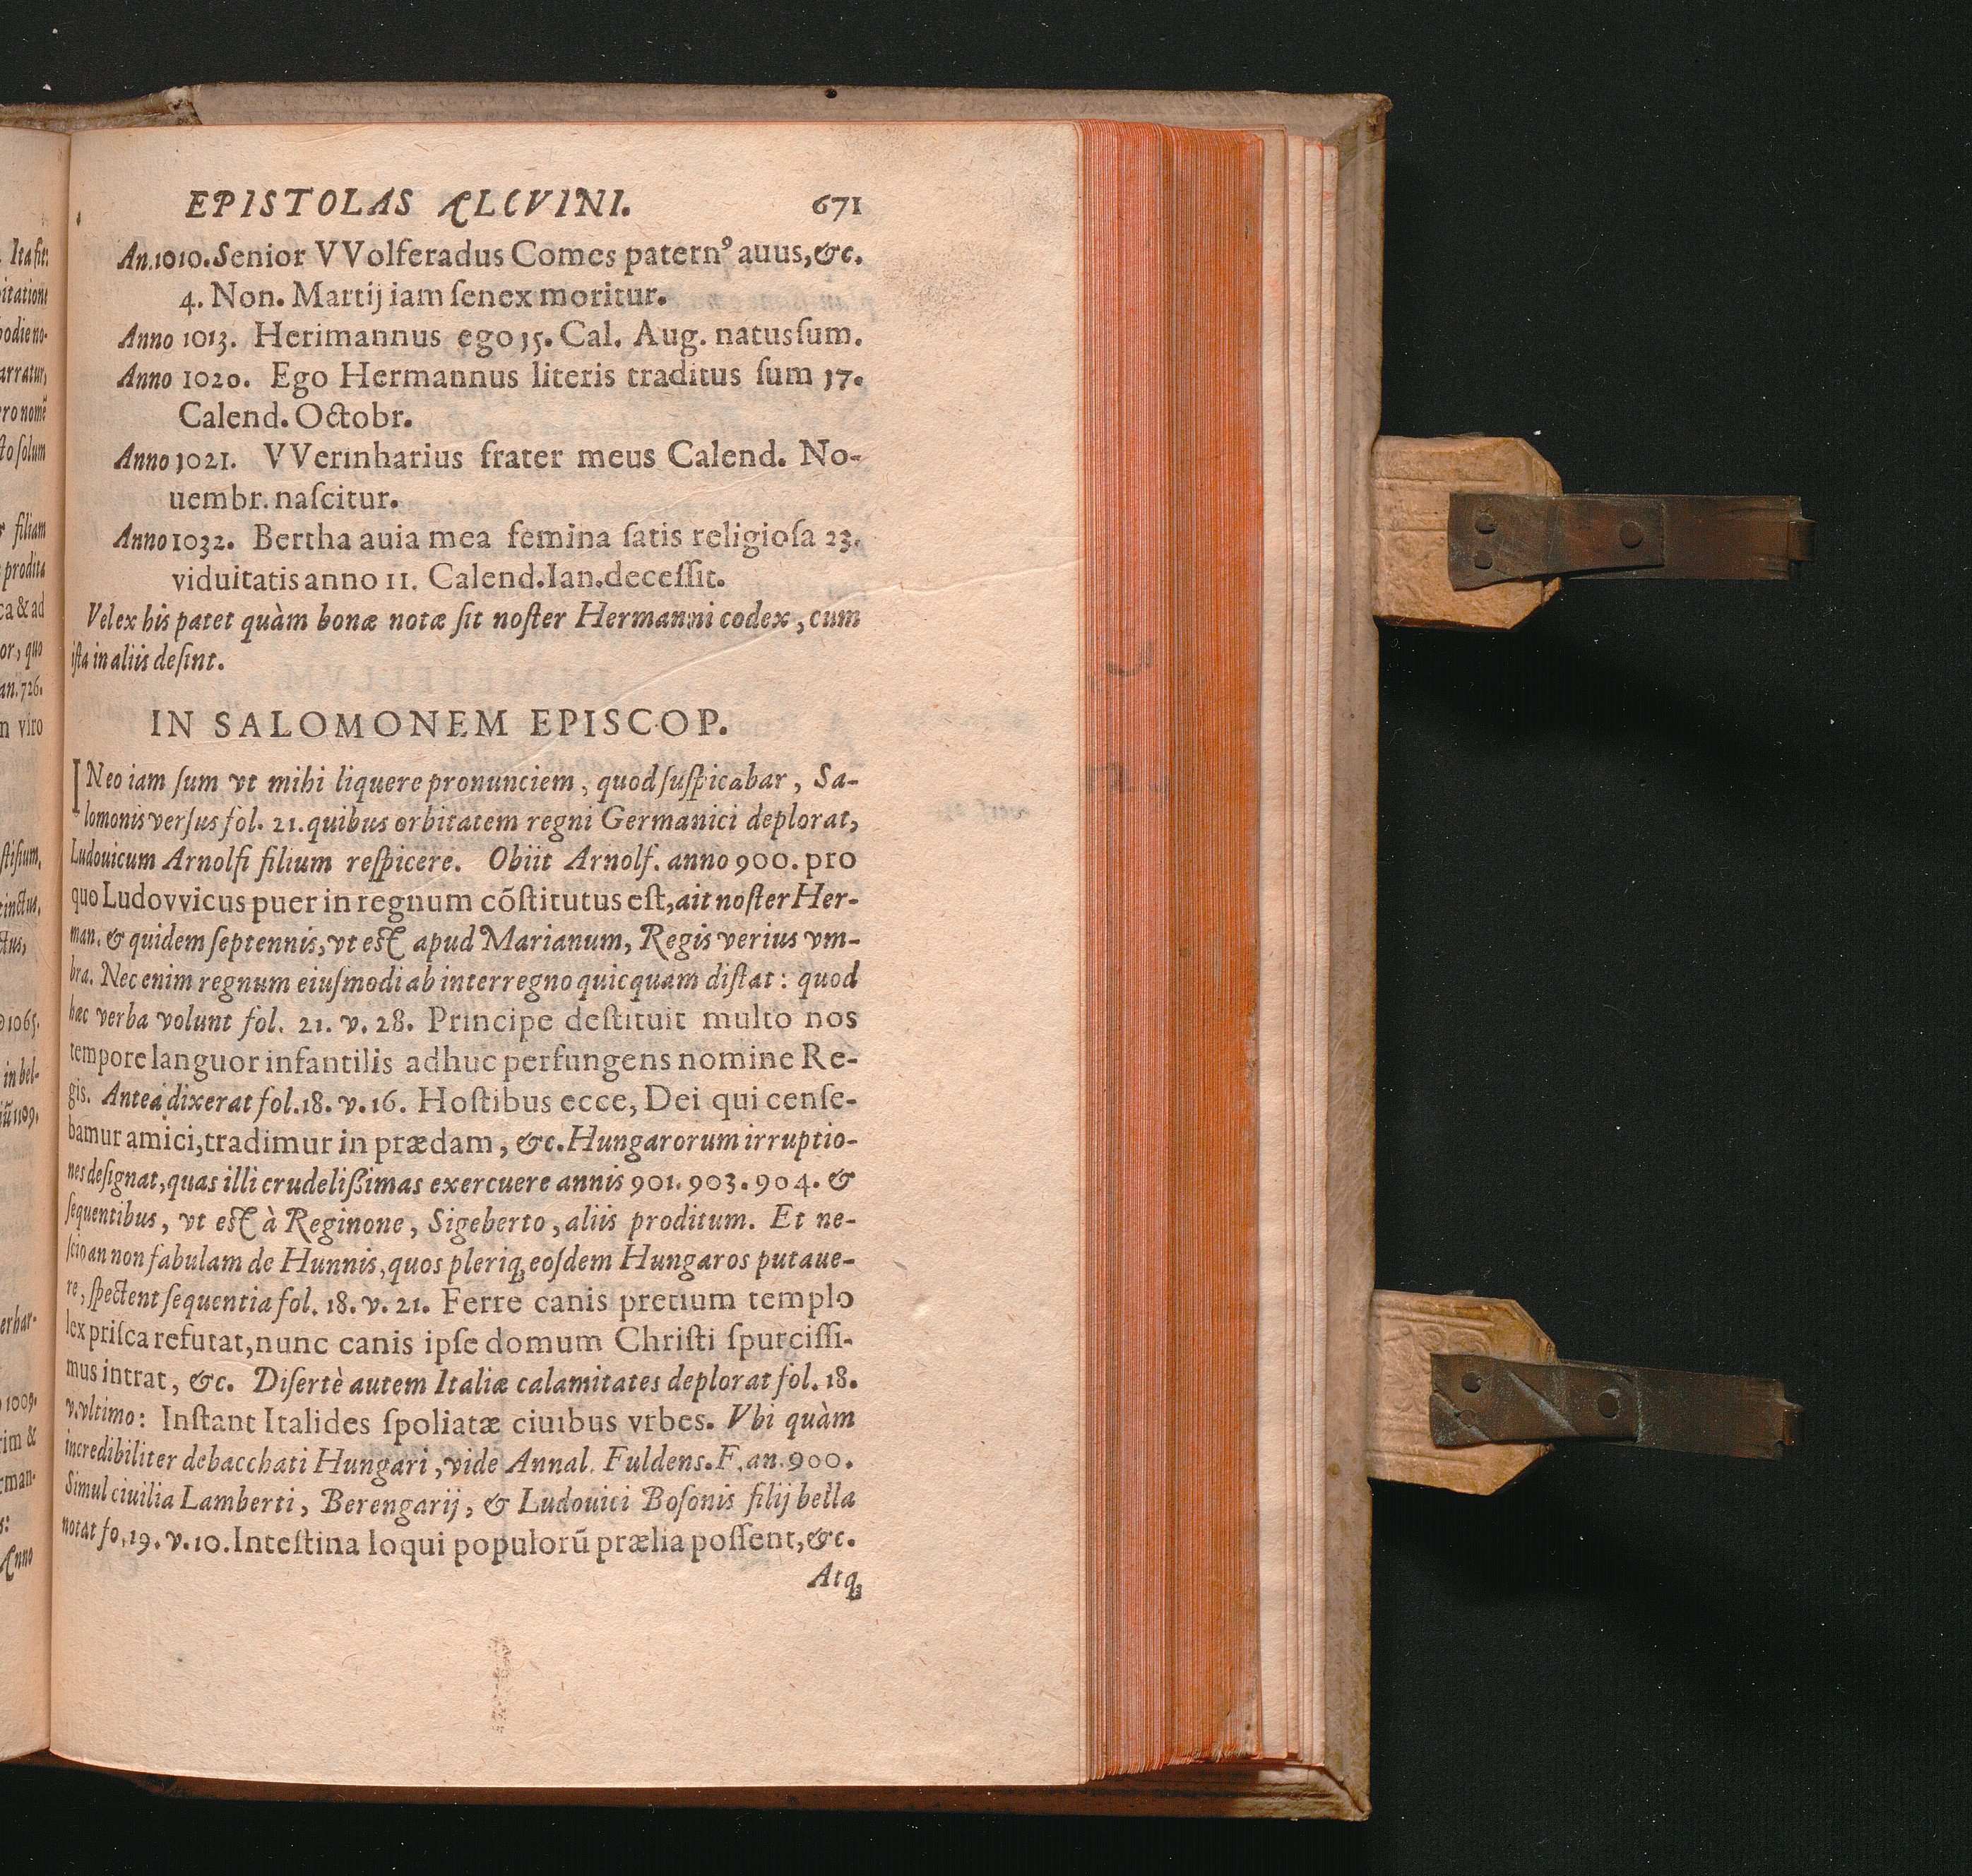 EPISTOLAS ALCVINI. 671
An. 1010. Senior VVolferadus Comes patern⁹ auus, &c.
4. Non. Martij iam ſenex moritur.
Anno 1013. Herimannus ego 15. Cal. Aug. natus ſum.
Anno 1020. Ego Hermannus literis traditus ſum 17.
Calend. Octobr.
Anno 1021. VVerinharius frater meus Calend. No-
uembr. naſcitur.
Anno 1032. Bertha auia mea femina ſatis religioſa 23.
viduitatis anno 11. Calend. Ian. deceſſit.
Vel ex his patet quàm bonæ notæ ſit noſter Hermanni codex, cum
iſta in aliis deſint.
IN SALOMONEM EPISCOP.
INeo iam ſum vt mihi liquere pronunciem, quod ſuſpicabar, Sa-
lomonis verſus fol. 21. quibus orbitatem regni Germanici deplorat,
Ludouicum Arnolfi filium reſpicere. Obiit Arnolf. anno 900. pro
quo Ludovvicus puer in regnum cõſtitutus eſt, ait noſter Her-
man. & quidem ſeptennis, vt eſt apud Marianum, Regis verius vm-
bra. Nec enim regnum eiuſmodi ab interregno quicquam diſtat: quod
hac verba volunt fol. 21. v. 28. Principe deſtituit multo nos
tempore languor infantilis adhuc perfungens nomine Re-
gis. Antea dixerat fol. 18. v. 16. Hoſtibus ecce, Dei qui cenſe-
bamur amici, tradimur in prædam, &c. Hungarorum irruptio-
nes deſignat, quas illi crudelißimas exercuere annis 901. 903. 904. &
ſequentibus, vt eſt à Reginone, Sigeberto, aliis proditum. Et ne-
ſcio an non fabulam de Hunnis, quos pleriq; eoſdem Hungaros putaue-
re, ſpectent ſequentia fol. 18. v. 21. Ferre canis pretium templo
lex priſca refutat, nunc canis ipſe domum Chriſti ſpurciſſi-
mus intrat, &c. Diſertè autem Italiæ calamitates deplorat fol. 18.
v. vltimo: Inſtant Italides ſpoliatæ ciuibus vrbes. Vbi quàm
incredibiliter debacchati Hungari, vide Annal. Fuldens. F. an. 900.
Simul ciuilia Lamberti, Berengarij, & Ludouici Boſonis filij bella
notat fo. 19. v. 10. Inteſtina loqui populorũ prælia poſſent, &c.
Atq;